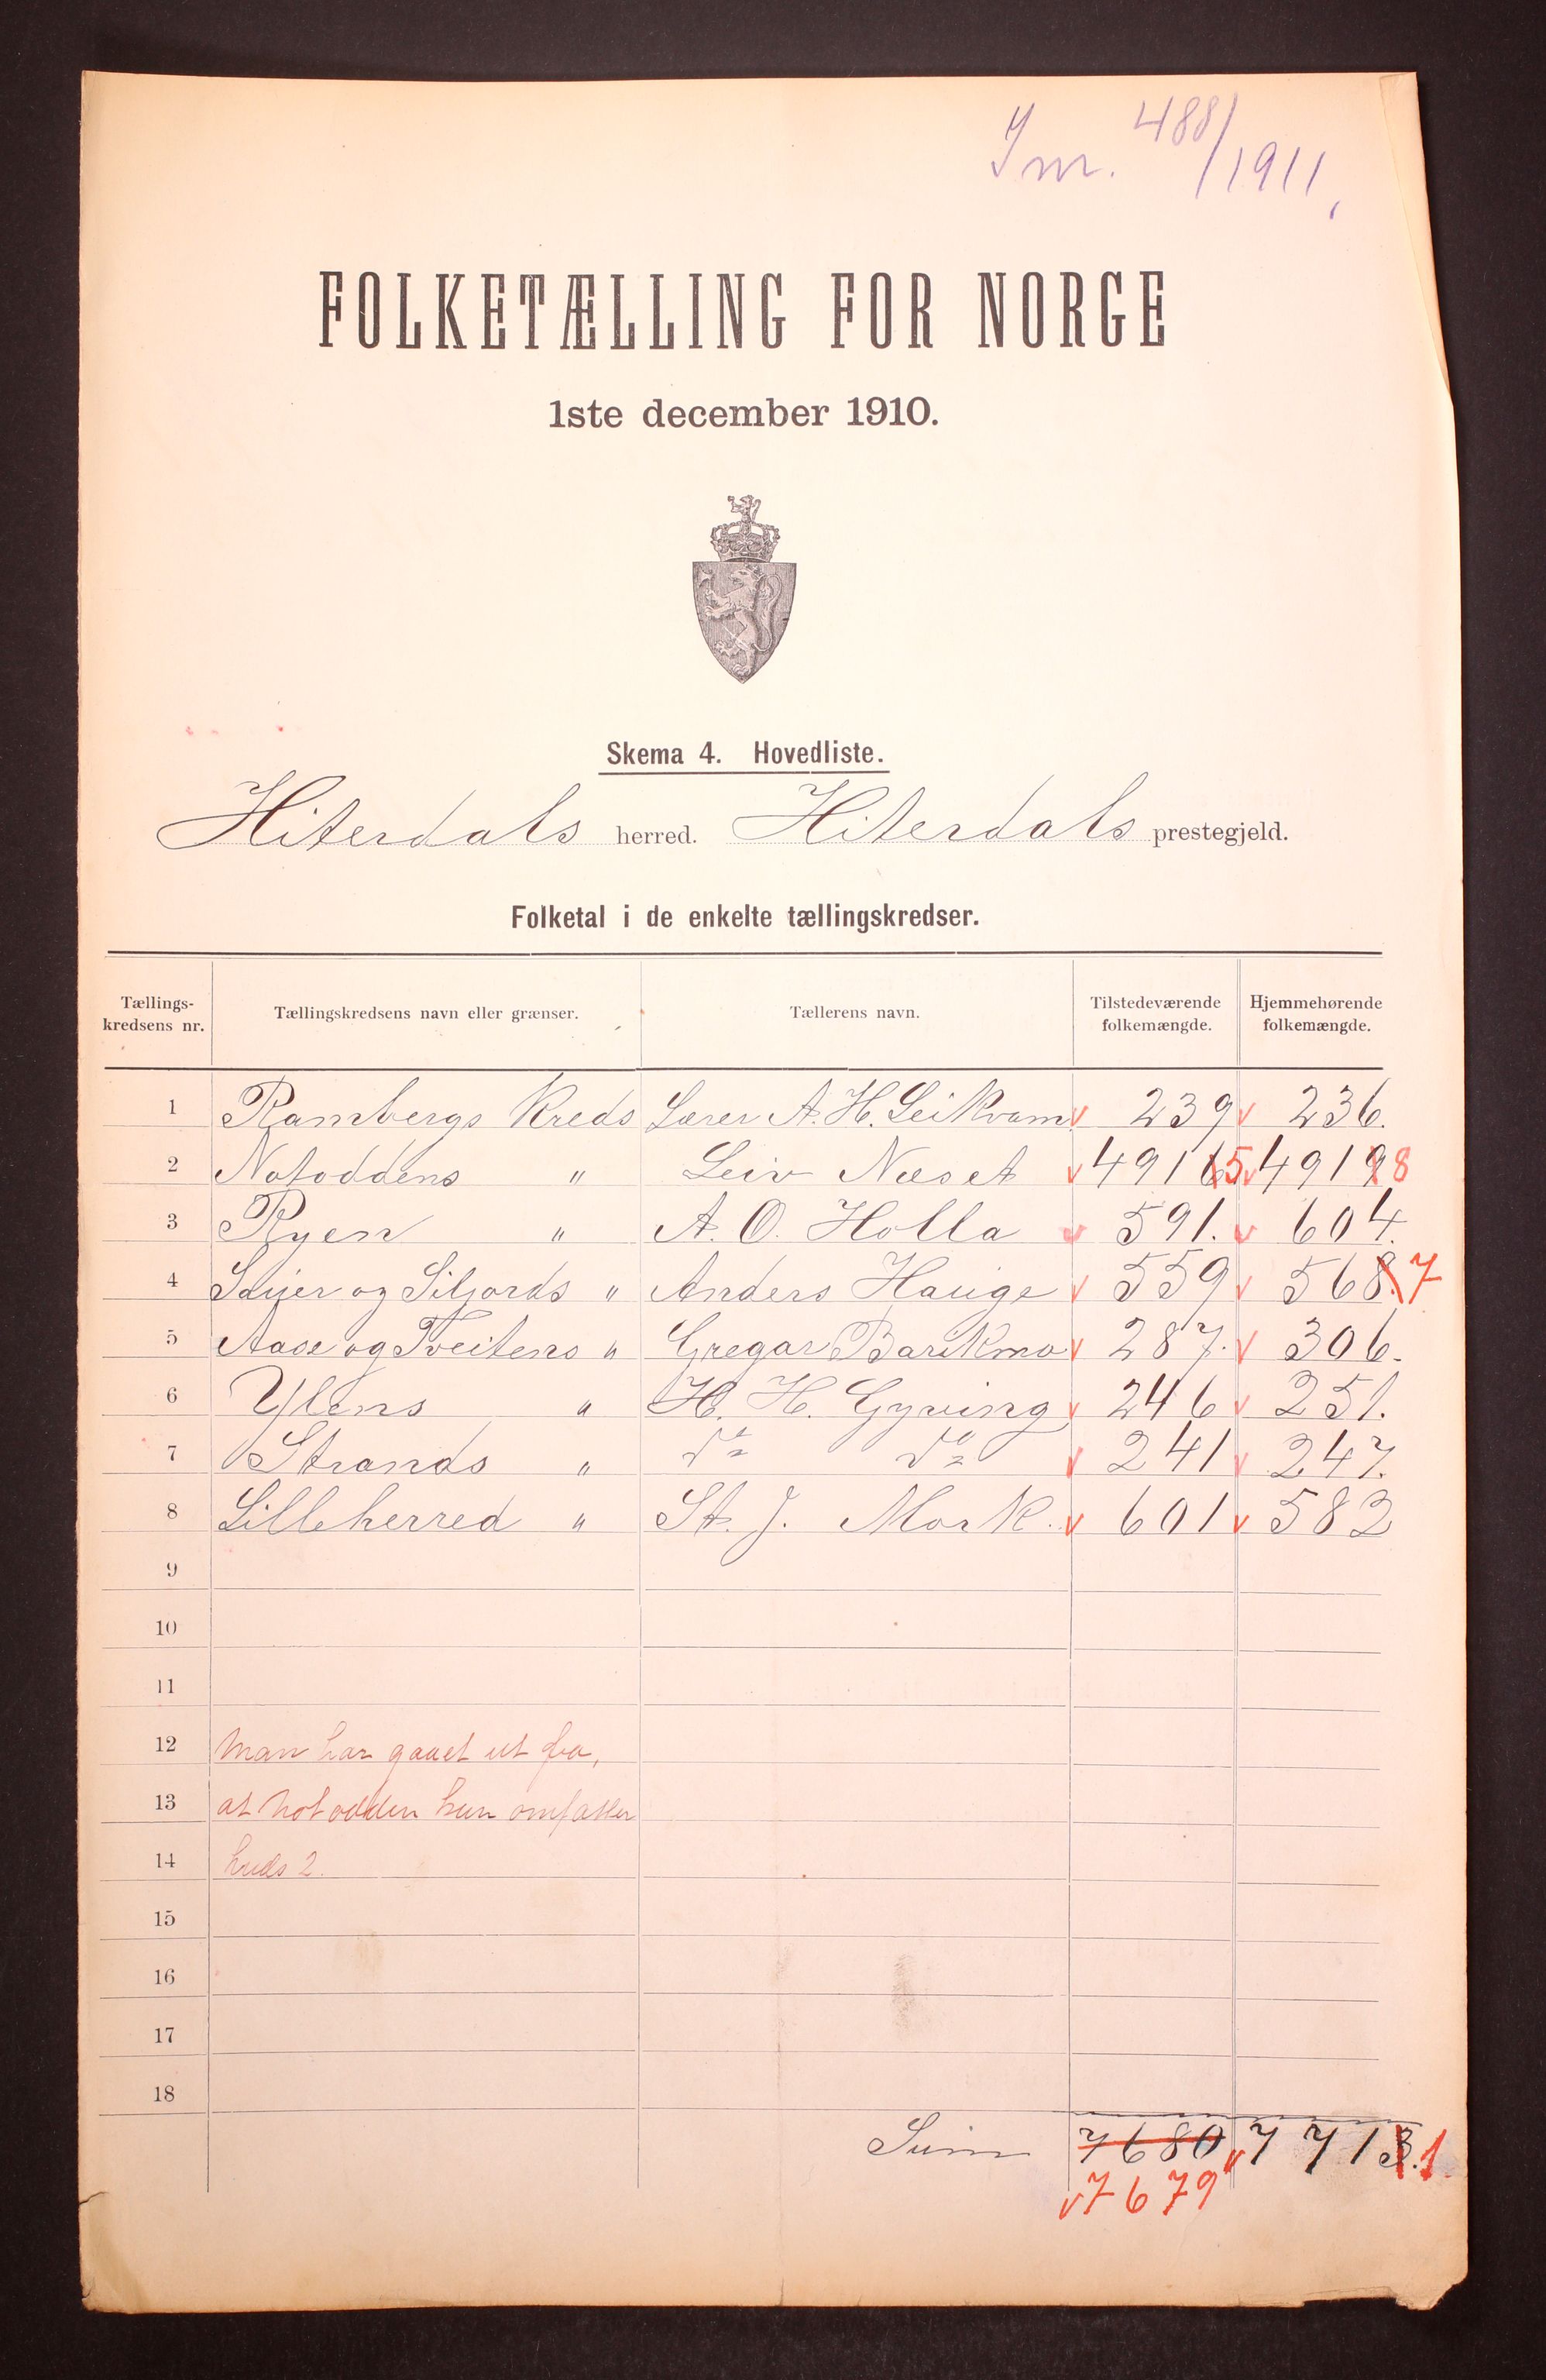 J nr. 488/1911,
FOLKETÆLLING FOR NORGE
1ste december 1910.
Skema 4. Hovedliste.
Hiterdals herred. Hiterdals prestegjeld.
Folketal i de enkelte tællingskredser.
Tællings-kredsens nr. Tællingskredsens navn eller grænser. Tællerens navn. Tilstedeværende folkemængde. Hjemmehørende folkemængde.
1 Rambergs Kreds Lærer A. H. Leikvam v 239 v 236.
2 Notoddens " Leiv Næset v 4916 5 v 4919 8
3 Ryen " A. O. Holla v 591. v 604.
4 og Siljords " Anders Hauge v 559 v 568. 7
5 Aase og Tveitens " Gregar Barikmo v 287. v 306.
6 Ylens " H. H. Gyving v 246 v 251.
7 Strands " do do v 241 v 247.
8 Lilleherred " St. J. Mork. v 601 v 582
9
10
11
12 Man har gaaet ut fra,
13 at Notodden kun omfatter
14 kreds 2.
15
16
17
18
Sum 7680 v 7713. 1.
v 7679